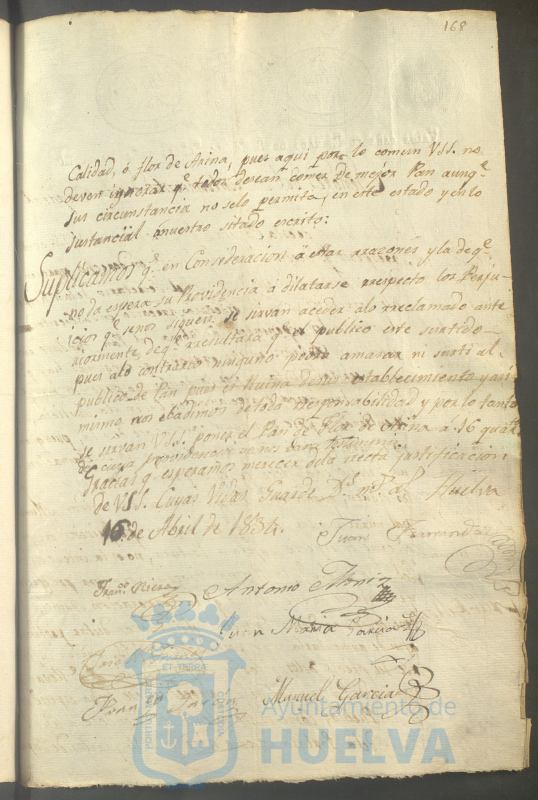 168
Calidad, ó flor de Arina, pues aqui por lo comun VSS. no
deven ignorar q.e todos desean comer de mejor Pan aunq.e
sus circunstancia no selo permita, en este estado y en lo
sustancial nuestro sitado escrito:
Suplicamos q.e en Consideracion á estas rrazones y la de q.e
no la espera su Providencia á dilatarse rrespecto los Perjui-
cios q.e se nos siguen se sirvan aceder alo rreclamado ante
riormente de q.e rresultara q.e el publico este surtido
pues alo contrario ninguno podra amasar ni surtir al
publico de Pan pues es Ruina de su establecimiento y asi
mismo nos ebadimos de toda rresponsabilidad y por lo tanto
se sirvan VSS. poner el Pan de Flor de Arina á 16 quart.s
de cuya providencia
Gracia q.e esperamos merecer de la recta justificacion
de VSS. Cuyas Vidas Guarde D.s m.s a.s Huelva
16 de Abril de 1834.
Juan Fernandez
Fran.co Riera
Antonio Muñiz
Juan Maria Garcia
Manuel Garcia
PORTUS MARIS
ET TERRÆ
CUSTODIA
Ayuntamiento de
HUELVA